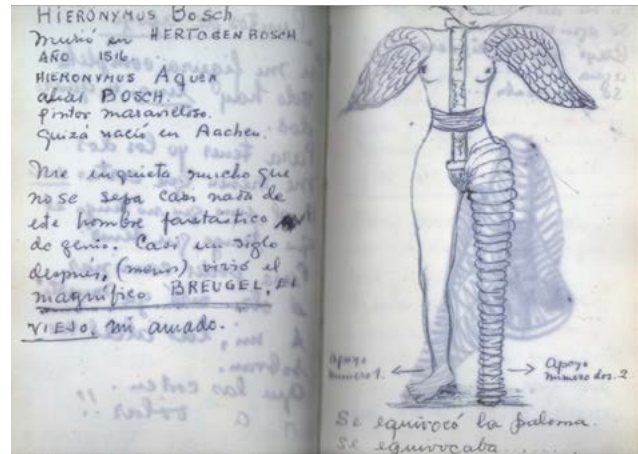 HIERONYMUS Bosch
murió en HERTOGENBOSCH
AÑO 1516
HIERONYMUS AQUEN
alias BOSCH.
pintor maravilloso.
quizá nació en Aachen.
Me inquieta mucho que
no se sepa casi nada de
este hombre fantástico
de genio. Casi un siglo
después, (menos) vivió el
magnífico BREUGEL, EL
VIEJO, mi amado.
Apoyo
número 1.
Apoyo
número dos. 2
Se equivocó la paloma.
se equivocaba........